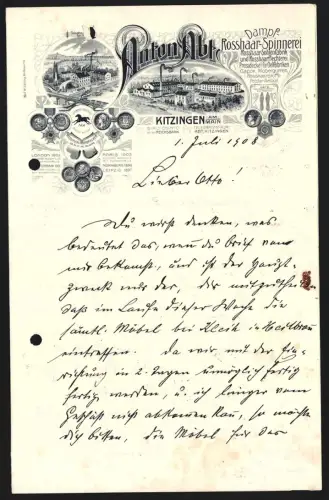 Anton Abt
Dampf
Rosshaar-Spinnerei
KITZINGEN
1. Juli 1908
Lieber Otto!
Du wirst denken, was
bedeutet das, wenn du Brief von
mir bekommst, und ist der Haupt-
zweck nur der, dir mitzutheilen
daß im Laufe dieser Woche die
sämtl. Möbel bei Kleib in Heilbron
eintreffen. Da wir mit der Ein-
richtung in 2 Tagen unmöglich fertig
fertig werden, u. ich länger vom
Geschäft nicht abkommen kan, so möchte
dich bitten, die Möbel für das